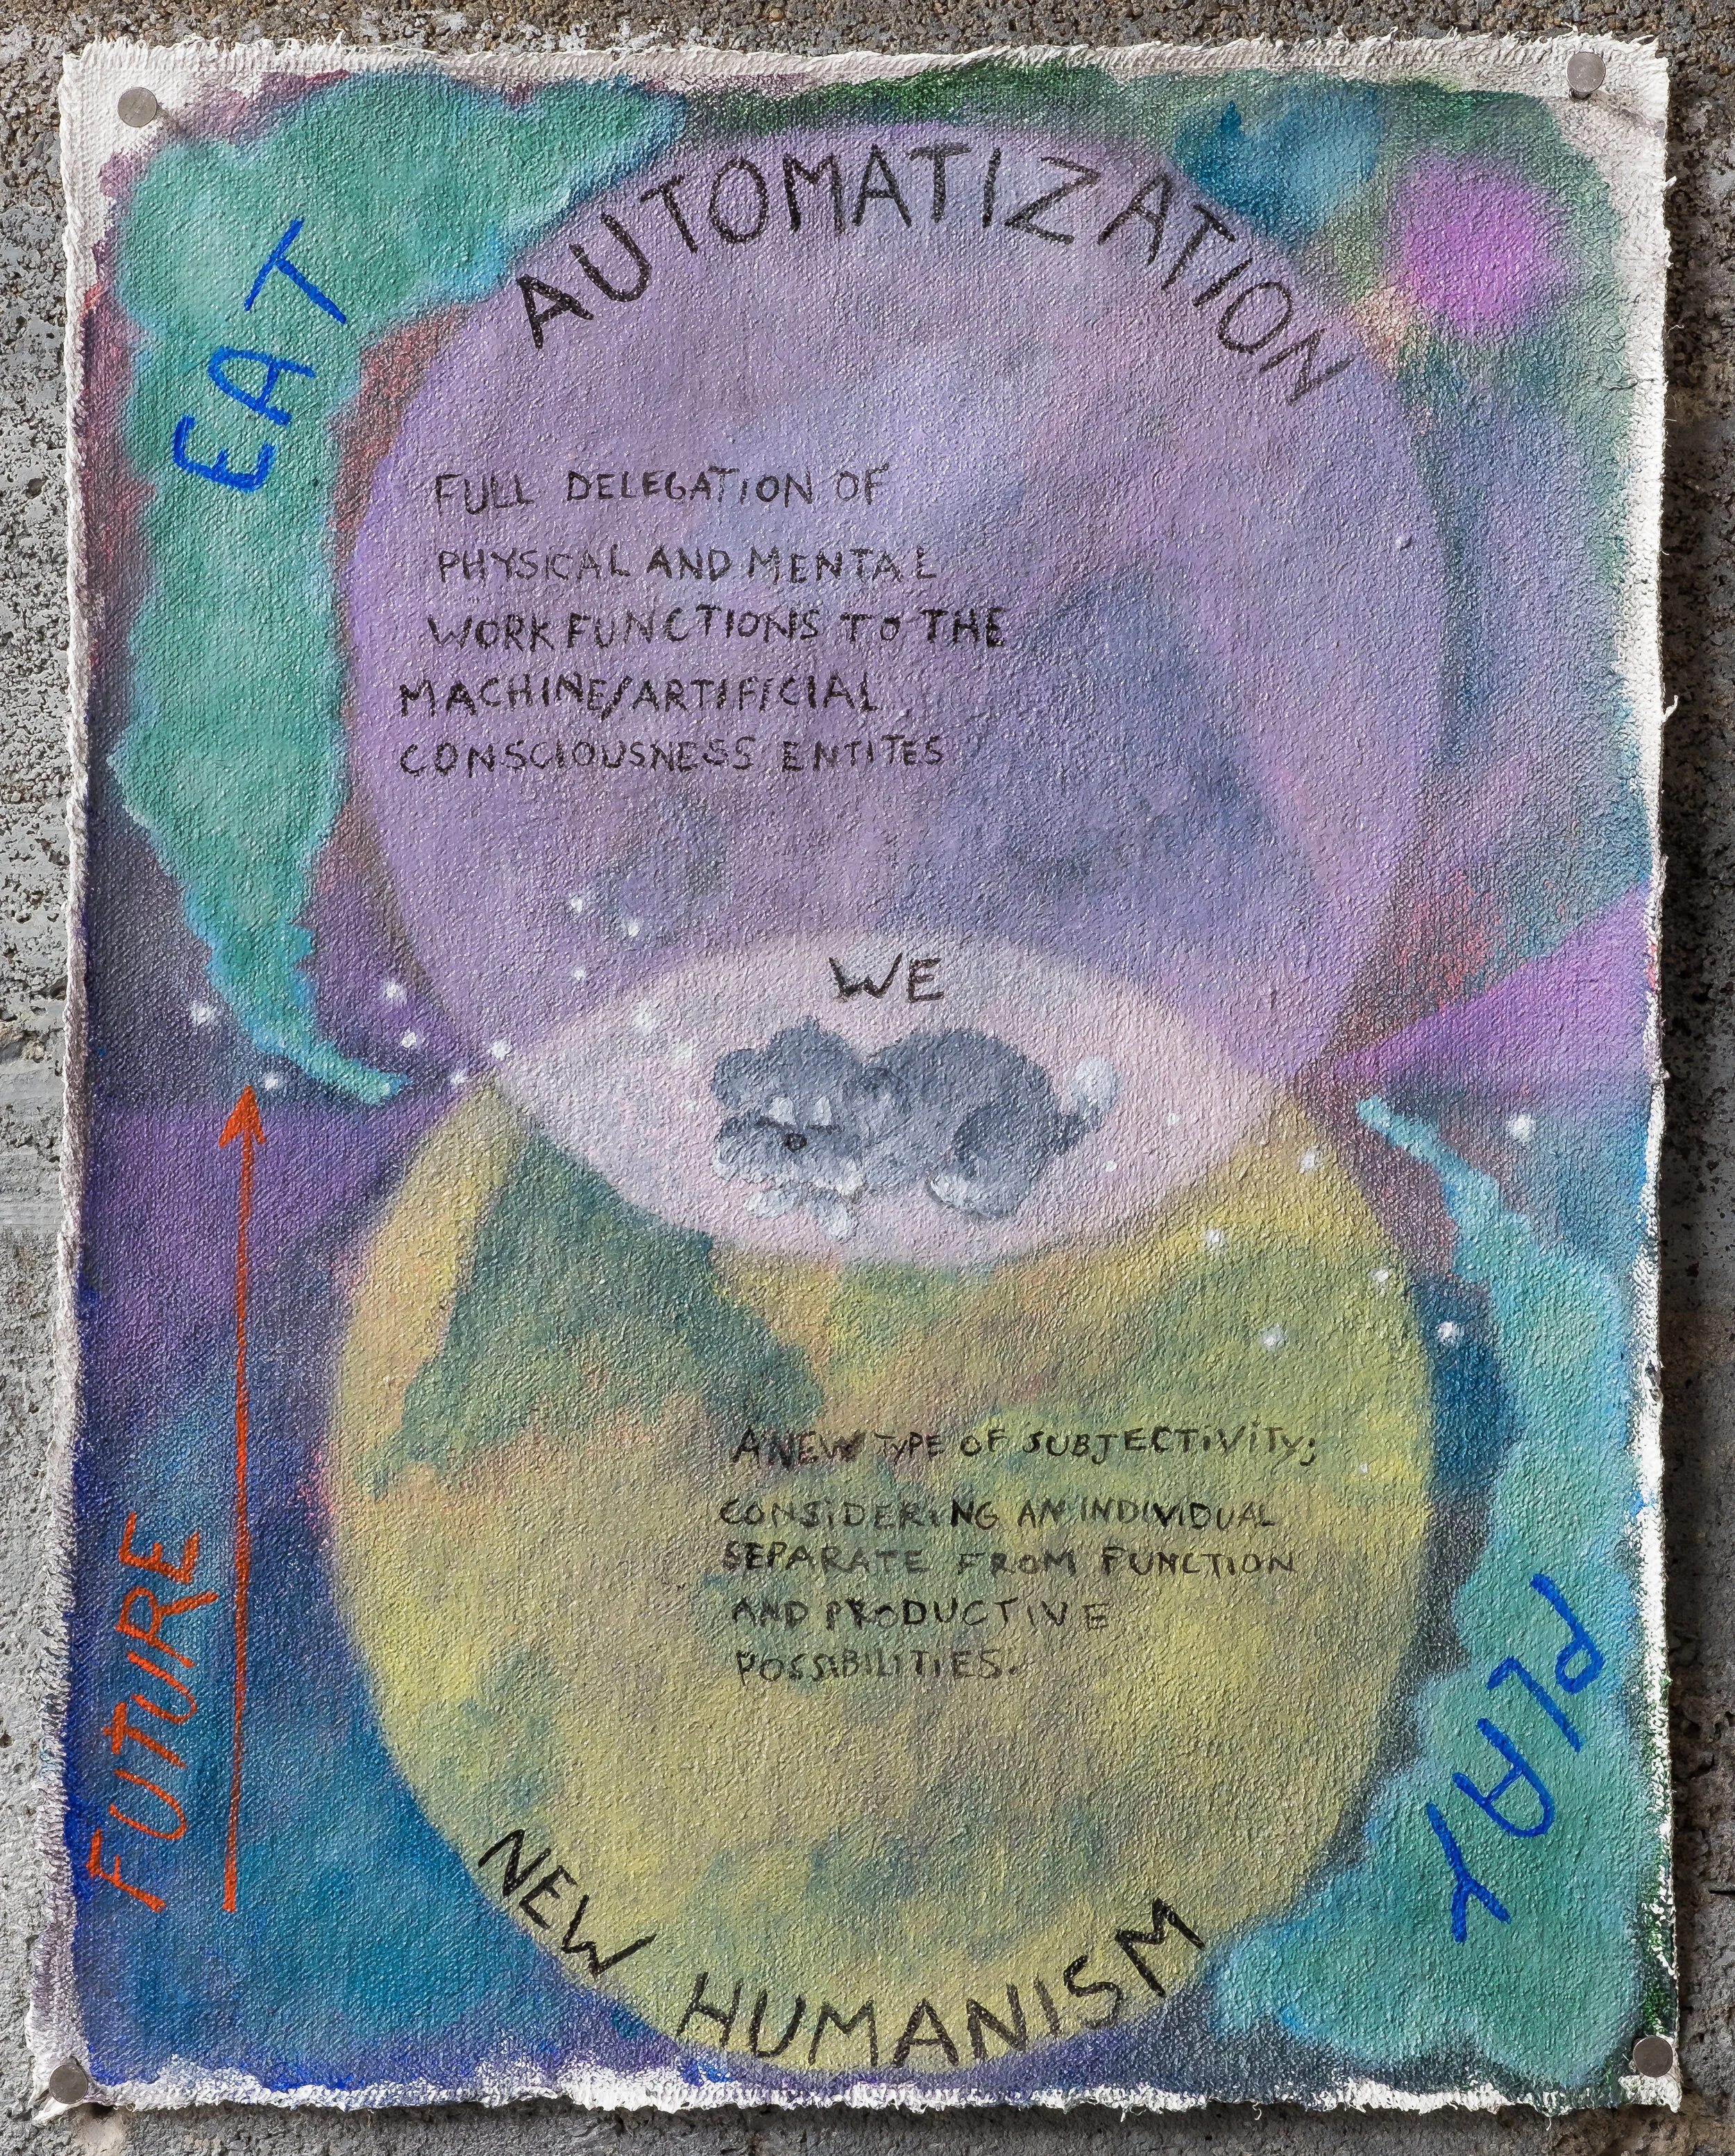 AUTOMATIZATION
EAT
FULL DELEGATION OF
PHYSICAL AND MENTAL
WORK FUNCTIONS TO THE
MACHINE/ARTIFICIAL
CONSCIOUSNESS ENTITES
WE
FUTURE
A NEW TYPE OF SUBJECTIVITY;
CONSIDERING AN INDIVIDUAL
SEPARATE FROM FUNCTION
AND PRODUCTIVE
POSSIBILITIES.
PLAY
NEW HUMANISM